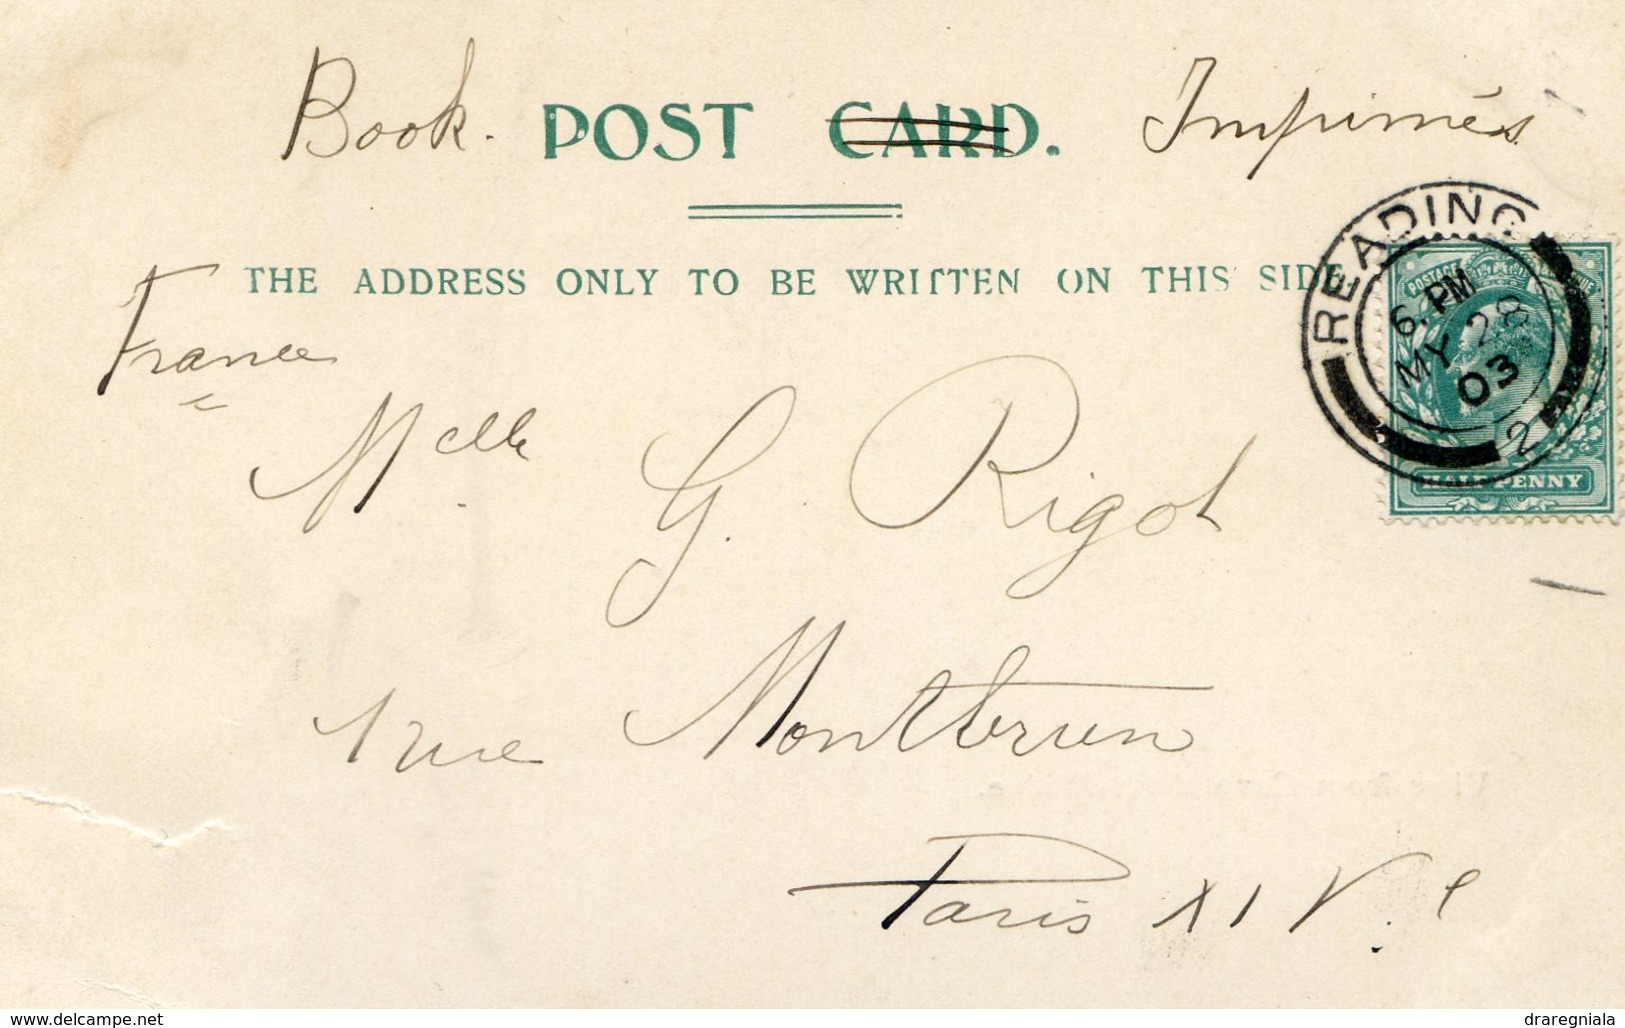 Book. POST CARD. Imprimés
THE ADDRESS ONLY TO BE WRITTEN ON THIS SIDE
READING
6. PM
MY 28
03
2
POSTAGE
HALFPENNY
France
Melle G. Rigot
1 rue Montbrun
Paris XIV.e
www.delcampe.net
draregniala